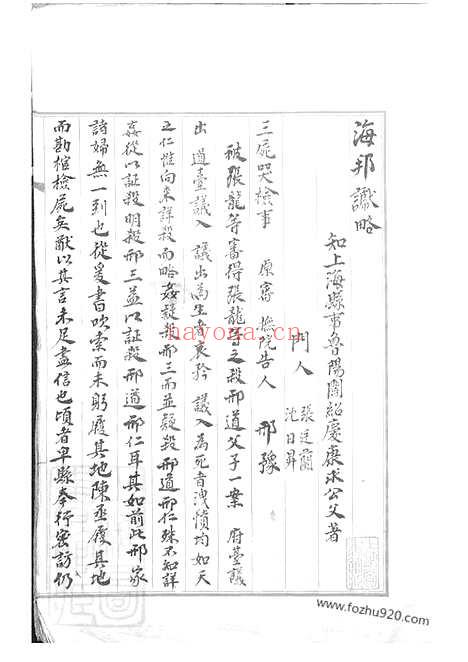 海邦讞略
知上海縣事魯陽閻紹慶康求公父著
門人
張廷蘭
沈日昇
三屍哭檢事 原審 撫院告人 邢豫
被張龍等審得張龍等之殺邢道父子一案 府臺議
出 道臺議入 議出為生者哀矜 議入為死者洩憤均如天
之仁惟向來詳殺而略姦疑邢三而並疑殺邢道邢仁殊不知詳
姦從以証殺明殺邢三益以証殺邢道邢仁耳其如前此邢家
詩婦無一到也從爰書吹索而未躬履其地陳丞履其地
而勘棺檢屍矣猷以其言未足盡信也頃者卑縣奉行密訪仍
hayona.cn
www.fozhu920.com